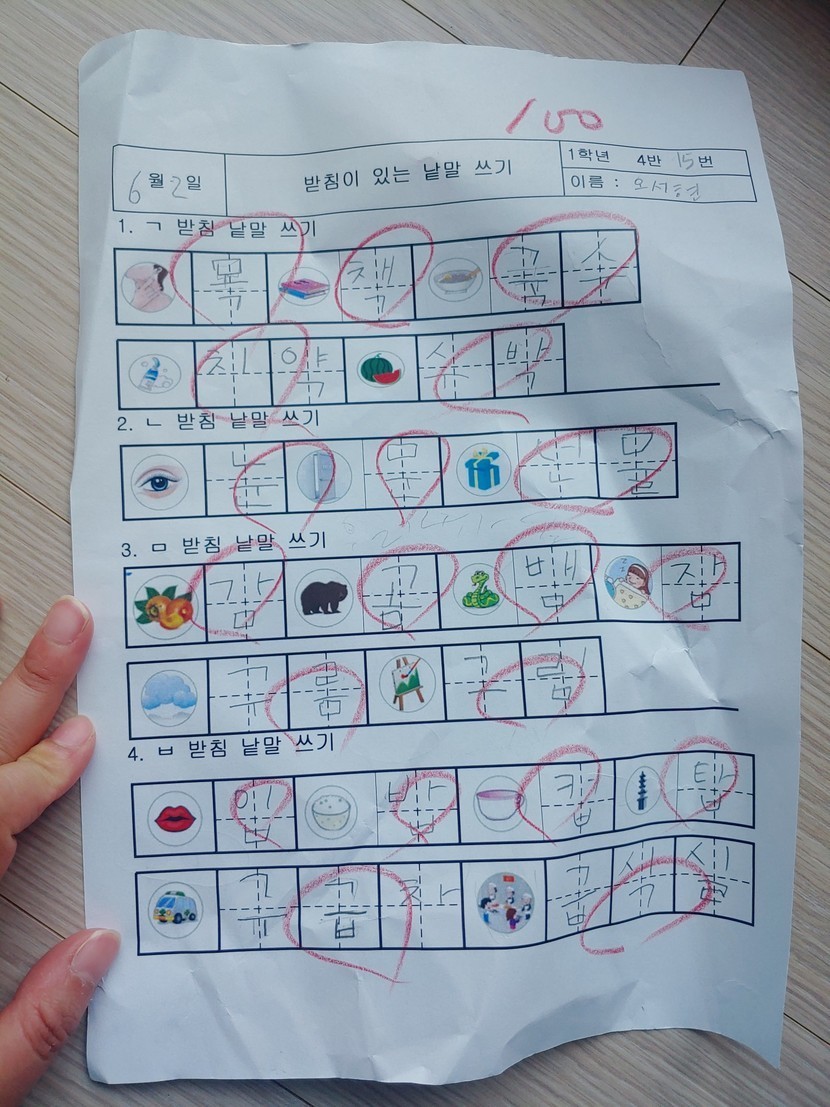 100
6월 2일 받침이 있는 낱말 쓰기 1학년 4반 15번
이름 : 오서현
1. ㄱ 받침 낱말 쓰기
목 책 국수
치약 수박
2. ㄴ 받침 낱말 쓰기
눈 문 선물
3. ㅁ 받침 낱말 쓰기
감 곰 뱀 잠
구름 그림
4. ㅂ 받침 낱말 쓰기
입 밥 컵 탑
구급차 급식실